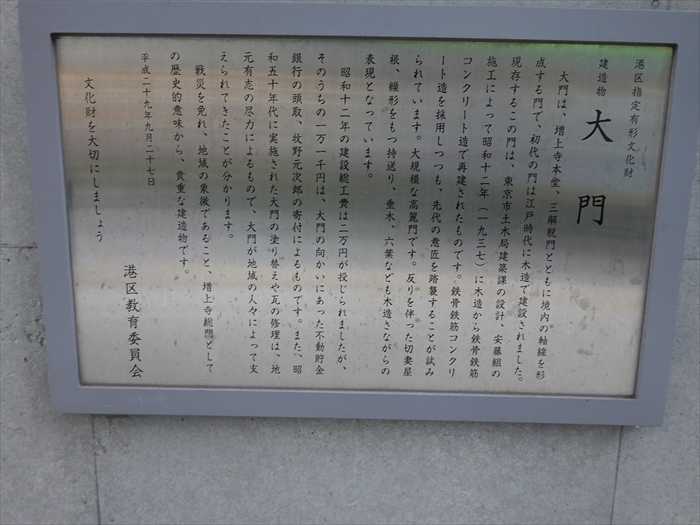 港区指定有形文化財
建造物 大門
大門は、増上寺本堂、三解脱門とともに境内の軸線を形
成する門で、初代の門は江戸時代に木造で建設されました。
現存するこの門は、東京市土木局建築課の設計、安藤組の
施工によって昭和十二年（一九三七）に木造から鉄骨鉄筋
コンクリート造で再建されたものです。鉄骨鉄筋コンクリ
ート造を採用しつつも、先代の意匠を踏襲することが試み
られています。大規模な高麗門です。反りを伴った切妻屋
根、繰形をもつ持送り、垂木、六葉なども木造さながらの
表現となっています。
昭和十二年の建設総工費は二万円が投じられましたが、
そのうちの一万一千円は、大門の向かいにあった不動貯金
銀行の頭取、牧野元次郎の寄付によるものです。また、昭
和五十年代に実施された大門の塗り替えや瓦の修理は、地
元有志の尽力によるもので、大門が地域の人々によって支
えられてきたことが分かります。
戦災を免れ、地域の象徴であること、増上寺総門として
の歴史的意味から、貴重な建造物です。
平成二十九年九月二十七日
文化財を大切にしましょう
港区教育委員会